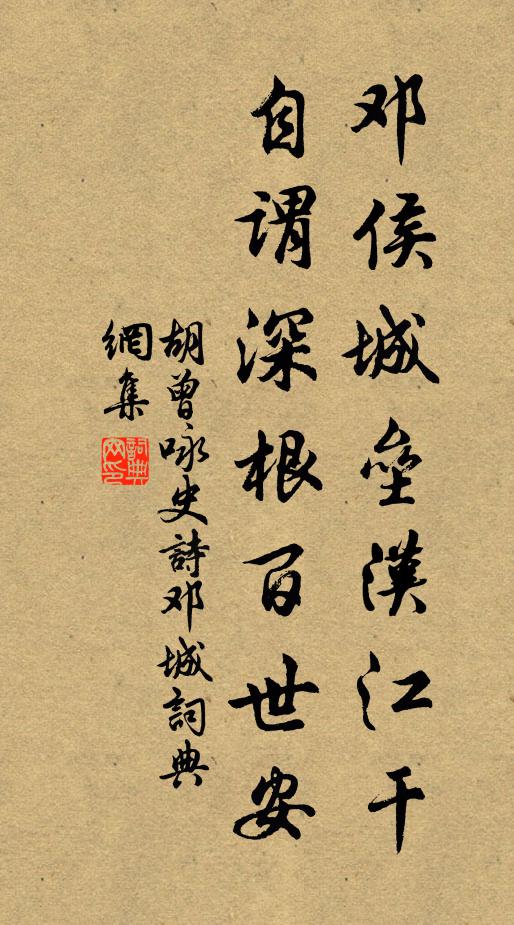 邓侯城垒漢江干
自谓深根百世安
胡曾咏史詩邓城詞典
網集
詞典
网印